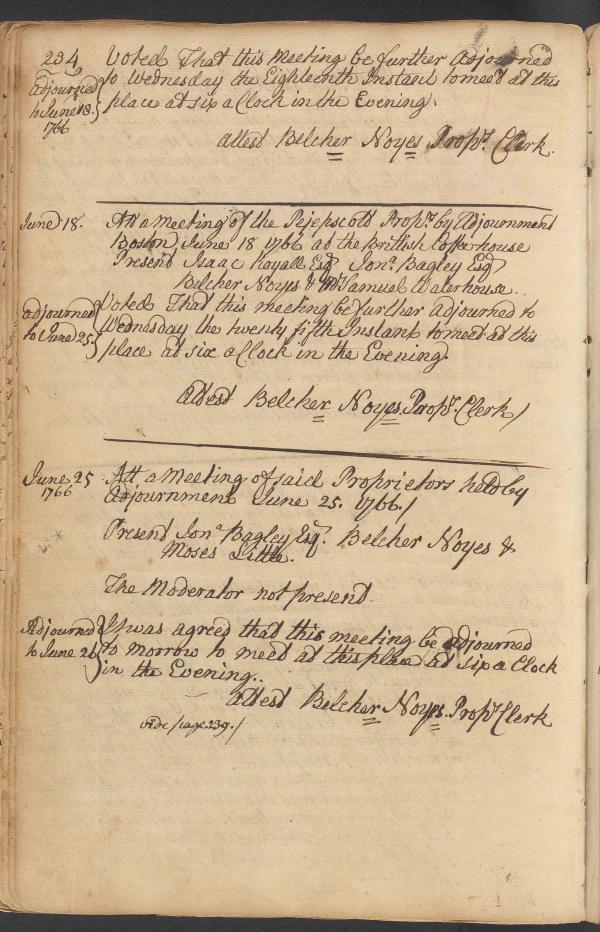 234
Voted That this Meeting be further Adjourned
adjourned to Wednesday the Eighteenth Instant to meet at this
to June 18. place at six a Clock in the Evening.
1766
attest Belcher Noyes. Propr. Clerk.
June 18. Att a Meeting of the Pejepscott Proprs. by Adjournment
Boston, June 18 1766 at the British Coffee house
Present Isaac Royall Esqr Jona. Bagley Esqr
Belcher Noyes & Mr Samuel Waterhouse..
adjourned Voted That this meeting be further adjourned to
to June 25. Wednesday the twenty fifth Instant to meet at this
place at six a Clock in the Evening.
attest Belcher Noyes. Propr. Clerk/
June 25 Att a Meeting of said Proprietors held by
1766 Adjournment June 25. 1766./
Present Jona. Bagley Esqr. Belcher Noyes &
Moses Little.
The Moderator not present.
Adjourned It was agreed that this meeting be adjourned
to June 26 to morrow to meet at this place at six a Clock
in the Evening..
attest Belcher Noyes. Propr Clerk
vide page 239./